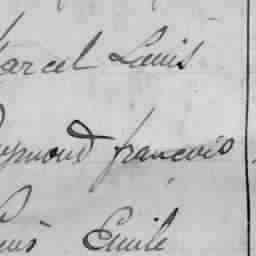 Marcel Louis
Raymond françois
Louis Emile